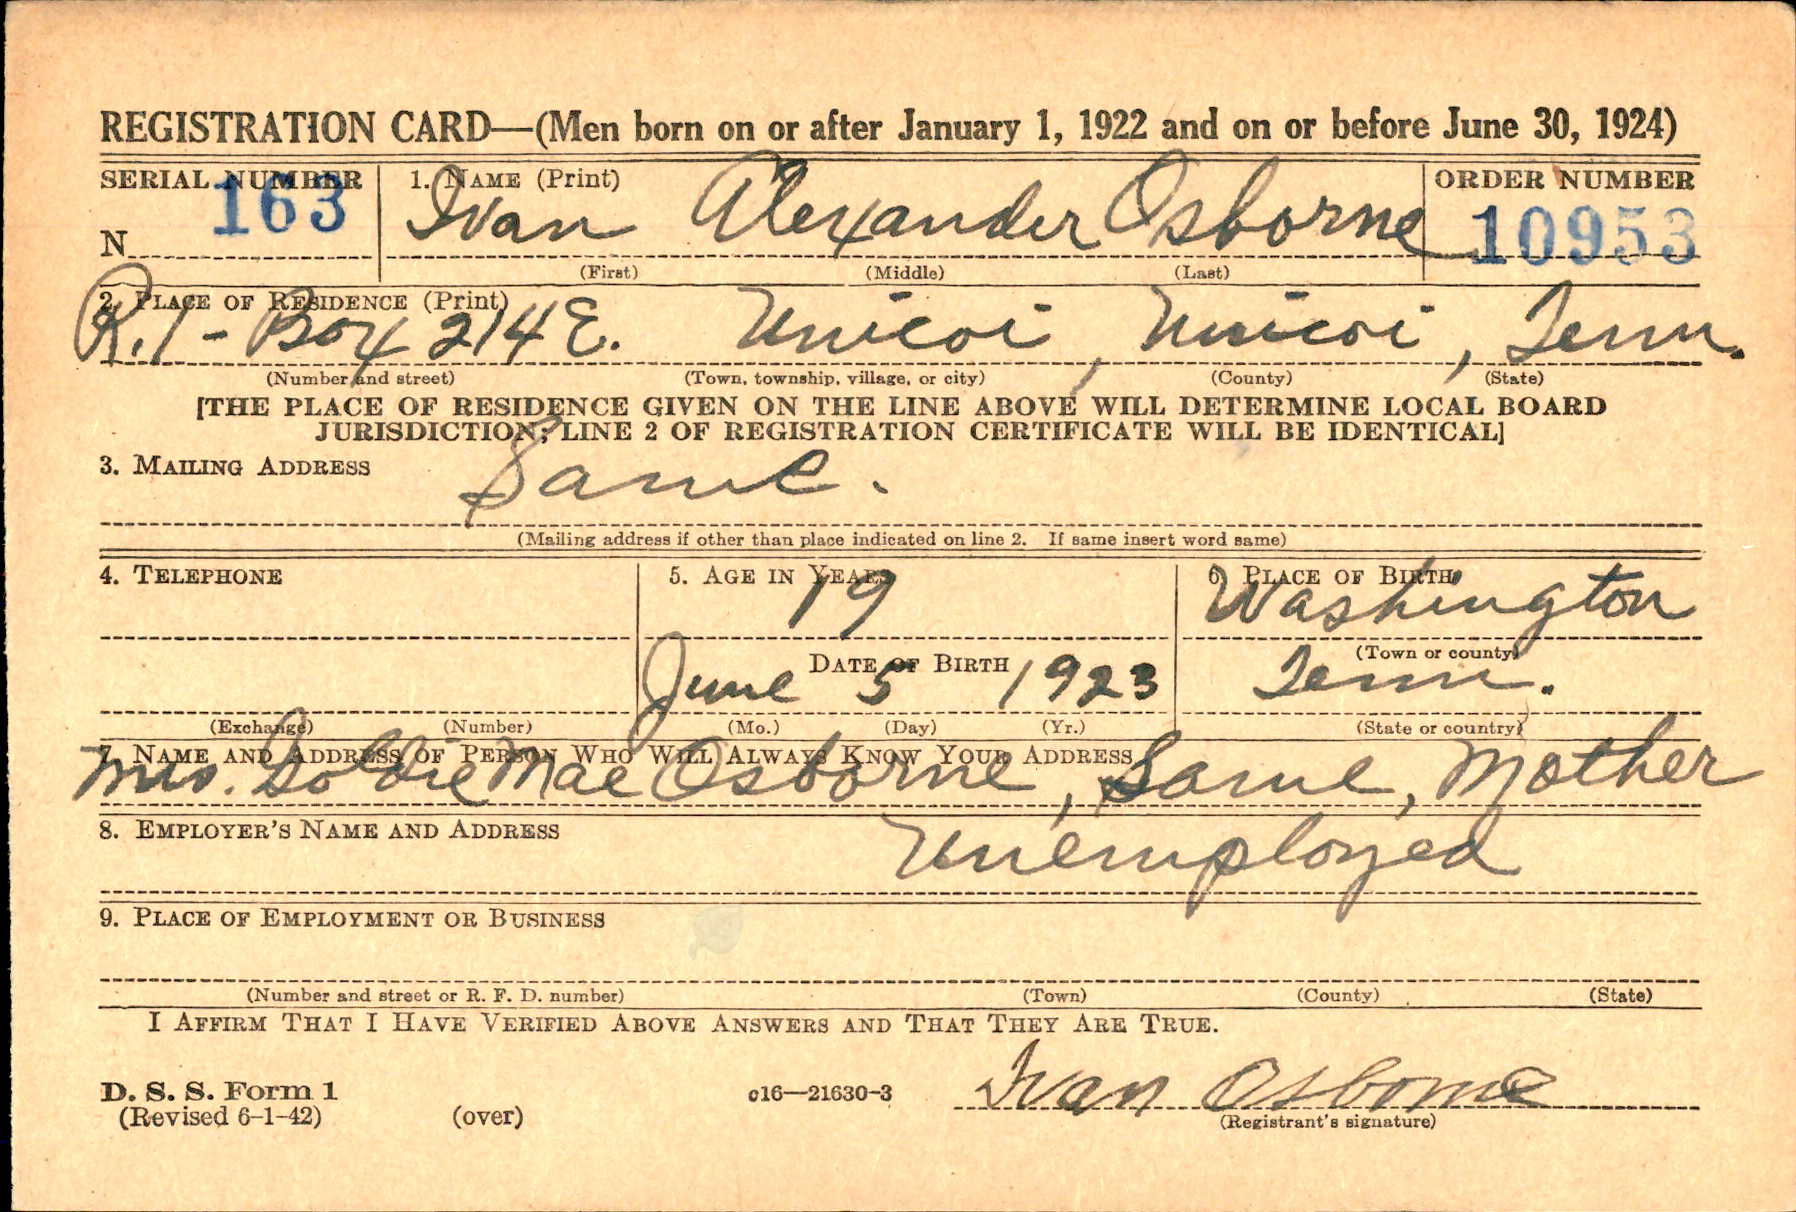 REGISTRATION CARD—(Men born on or after January 1, 1922 and on or before June 30, 1924)
SERIAL NUMBER 1. NAME (Print) ORDER NUMBER
N 163 Ivan Alexander Osborne 10953
(First) (Middle) (Last)
2. PLACE OF RESIDENCE (Print)
R.1 - Box 214 E. Unicoi, Unicoi, Tenn.
(Number and street) (Town, township, village, or city) (County) (State)
[THE PLACE OF RESIDENCE GIVEN ON THE LINE ABOVE WILL DETERMINE LOCAL BOARD
JURISDICTION; LINE 2 OF REGISTRATION CERTIFICATE WILL BE IDENTICAL]
3. MAILING ADDRESS
Same.
(Mailing address if other than place indicated on line 2. If same insert word same)
4. TELEPHONE 5. AGE IN YEARS 6. PLACE OF BIRTH
19 Washington
DATE OF BIRTH (Town or county)
June 5 1923 Tenn.
(Exchange) (Number) (Mo.) (Day) (Yr.) (State or country)
7. NAME AND ADDRESS OF PERSON WHO WILL ALWAYS KNOW YOUR ADDRESS
Mrs. Goldie Mae Osborne, Same, Mother
8. EMPLOYER'S NAME AND ADDRESS
Unemployed
9. PLACE OF EMPLOYMENT OR BUSINESS
(Number and street or R. F. D. number) (Town) (County) (State)
I AFFIRM THAT I HAVE VERIFIED ABOVE ANSWERS AND THAT THEY ARE TRUE.
D. S. S. Form 1 c16—21630-3 Ivan Osborne
(Revised 6-1-42) (over) (Registrant's signature)